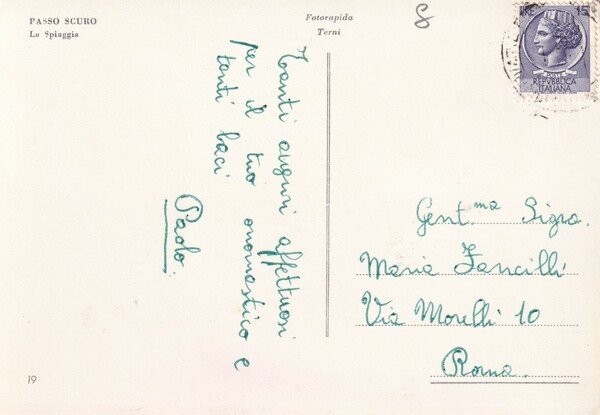 PASSO SCURO
La Spiaggia
Fotorapida
Terni
LIRE 15
REPVBBLICA
ITALIANA
Tanti auguri affettuosi
per il tuo onomastico e
tanti baci
Paolo.
Gent.ma Sigra.
Maria Fancilli
Via Morelli 10
Roma.
19